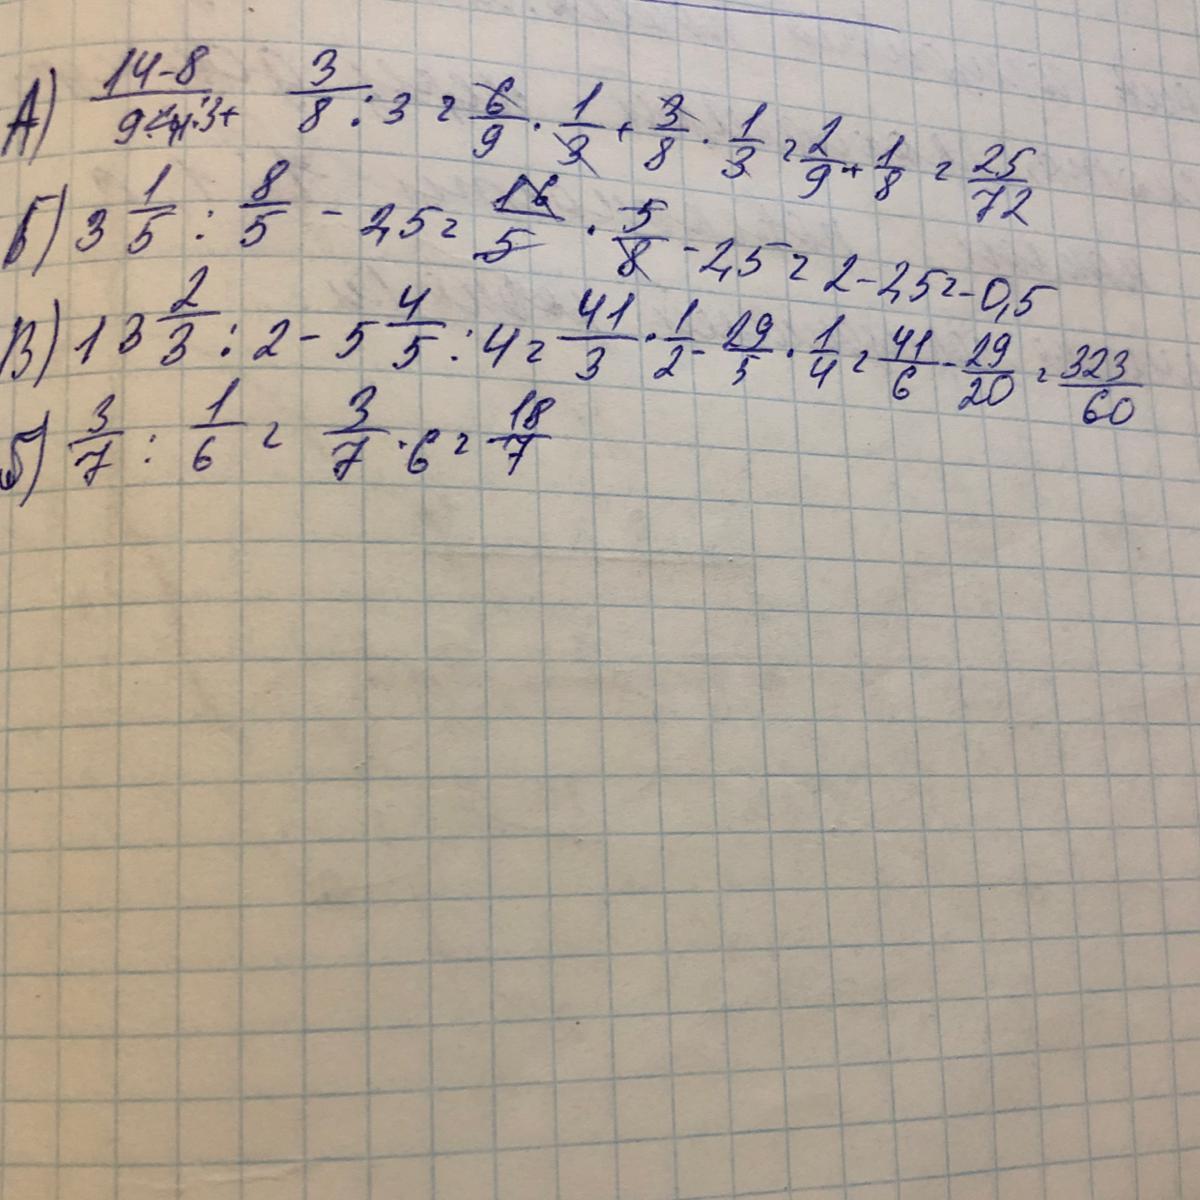 А) 14-8/9 :3+ 3/8 : 3 = 6/9 · 1/3 + 3/8 · 1/3 = 2/9 + 1/8 = 25/72
Б) 3 1/5 : 8/5 - 2,5 = 16/5 · 5/8 - 2,5 = 2 - 2,5 = -0,5
В) 13 2/3 : 2 - 5 4/5 : 4 = 41/3 · 1/2 - 29/5 · 1/4 = 41/6 - 29/20 = 323/60
5) 3/7 : 1/6 = 3/7 · 6 = 18/7